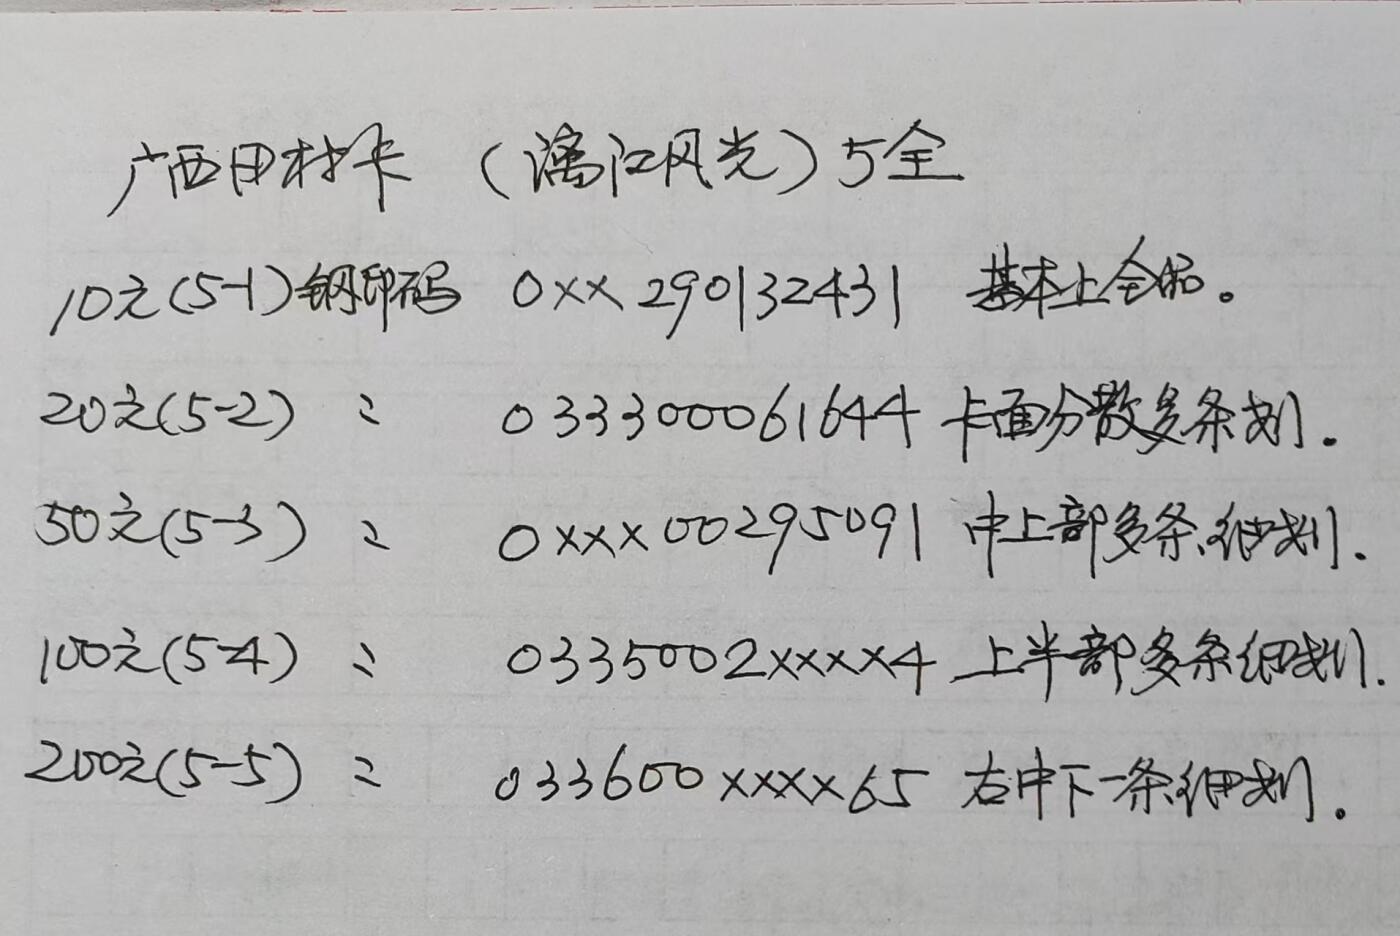 广西田村卡（漓江风光）5全
10元(5-1)钢印码 0xx290132431 基本上全品。
20元(5-2) 〃 033300061644 卡面分散多条划.
50元(5-3) 〃 0xxx00295091 中上部多条细划.
100元(5-4) 〃 0335002xxxx4 上半部多条细划.
200元(5-5) 〃 033600xxxx65 右中下一条细划.